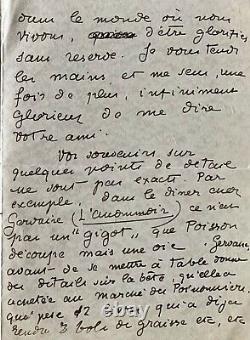 dans le monde où nous
vivons, d'être glorifiés
sans reserve. Je vous tends
les mains, et me sens, une
fois de plus, infiniment
glorieux de me dire
votre ami.
Vos souvenirs sur
quelques points de detail
ne sont pas exacts. Par
exemple, dans le diner chez
Gervaise (L'assommoir) ce n'est
pas un "gigot", que Poisson
decoupe mais une oie. Gervaise,
avant de se mettre à table donne
des details sur la bête, qu'elle a
achetée au marché
qui pese 12 livres, qui a déja
rendu 3 bols de graisse etc, etc